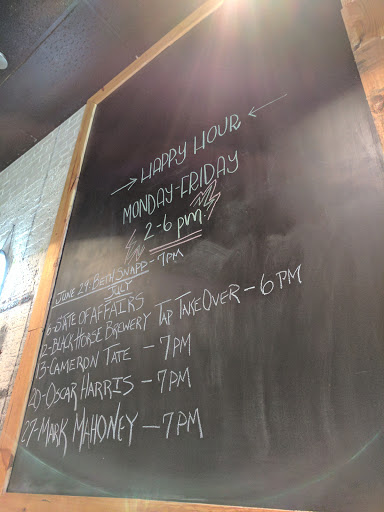 → HAPPY HOUR ←
MONDAY-FRIDAY
2-6 pm!
JUNE 29-BETH SNAPP - 7PM
JULY
6-STATE OF AFFAIRS
12-BLACK HORSE BREWERY TAP TAKEOVER - 6 PM
13-CAMERON TATE - 7PM
20-OSCAR HARRIS - 7PM
27-MARK MAHONEY - 7PM